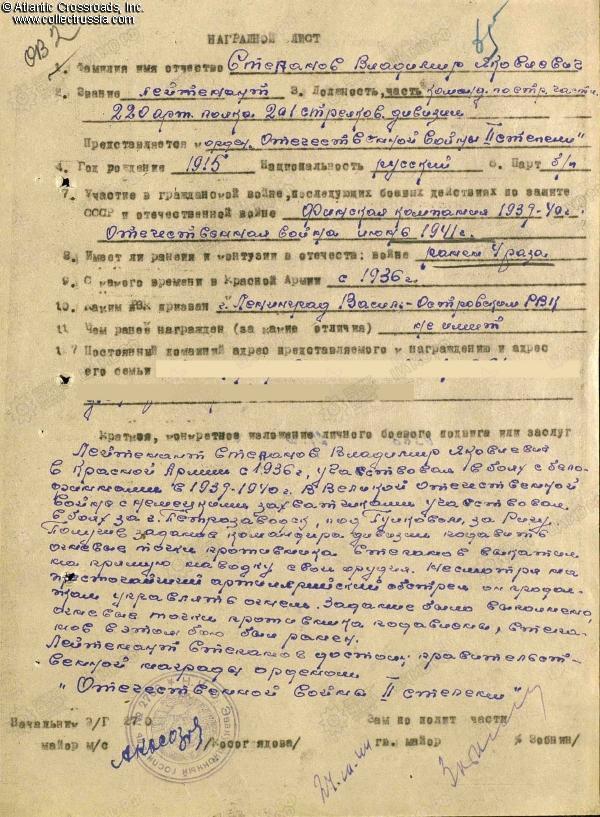 © Atlantic Crossroads, Inc.
www.collectrussia.com
НАГРАДНОЙ ЛИСТ
1. Фамилия имя отчество Степанов Владимир Яковлевич
2. Звание лейтенант 3. Должность, часть команд.
220 арт. полка 201 стрелков. дивизии
Представляется к орден. Отечественной Войны II степени"
4. Год рождения 1915 Национальность русский 6. Парт б/п
7. Участие в гражданской войне, последующих боевых действиях по защите
СССР и отечественной войне Финская компания 1939-40г.
Отечественная война июнь 1941г.
8. Имеет ли ранения и контузии в отечеств: войне ранен 4 раза
9. С какого времени в Красной Армии с 1936г.
10. Каким РВК призван г. Ленинград Василь-Островским РВК
11 Чем ранее награжден (за какие отличия) не имеет
Постоянный домашний адрес представляемого к награждению и адрес
его семьи
Краткое, конкретное изложение личного боевого подвига или заслуг
Лейтенант Степанов Владимир Яковлевич
в Красной Армии с 1936г, участвовал в боях с бело-
финнами в 1939-1940г. В Великой Отечественной
войне с немецкими захватчиками участвовал
в боях за г. Петрозаводск, под Пулковом, за Ригу.
Получив задание командира дивизии подавить
огневые точки противника Степанов выкатил
на прямую наводку свои орудия. Несмотря на
артиллерийский обстрел он продол-
жал управлять огнем. Задание было выполнено,
огневые точки противника подавлены, Степа-
нов в этом бою был ранен.
Лейтенант Степанов достоин правительст-
венной награды орденом
"Отечественной Войны II степени"
Начальник Э/Г 2780 Зам по полит части
майор м/с /Косоглядова/ гв. майор /Зобнин/